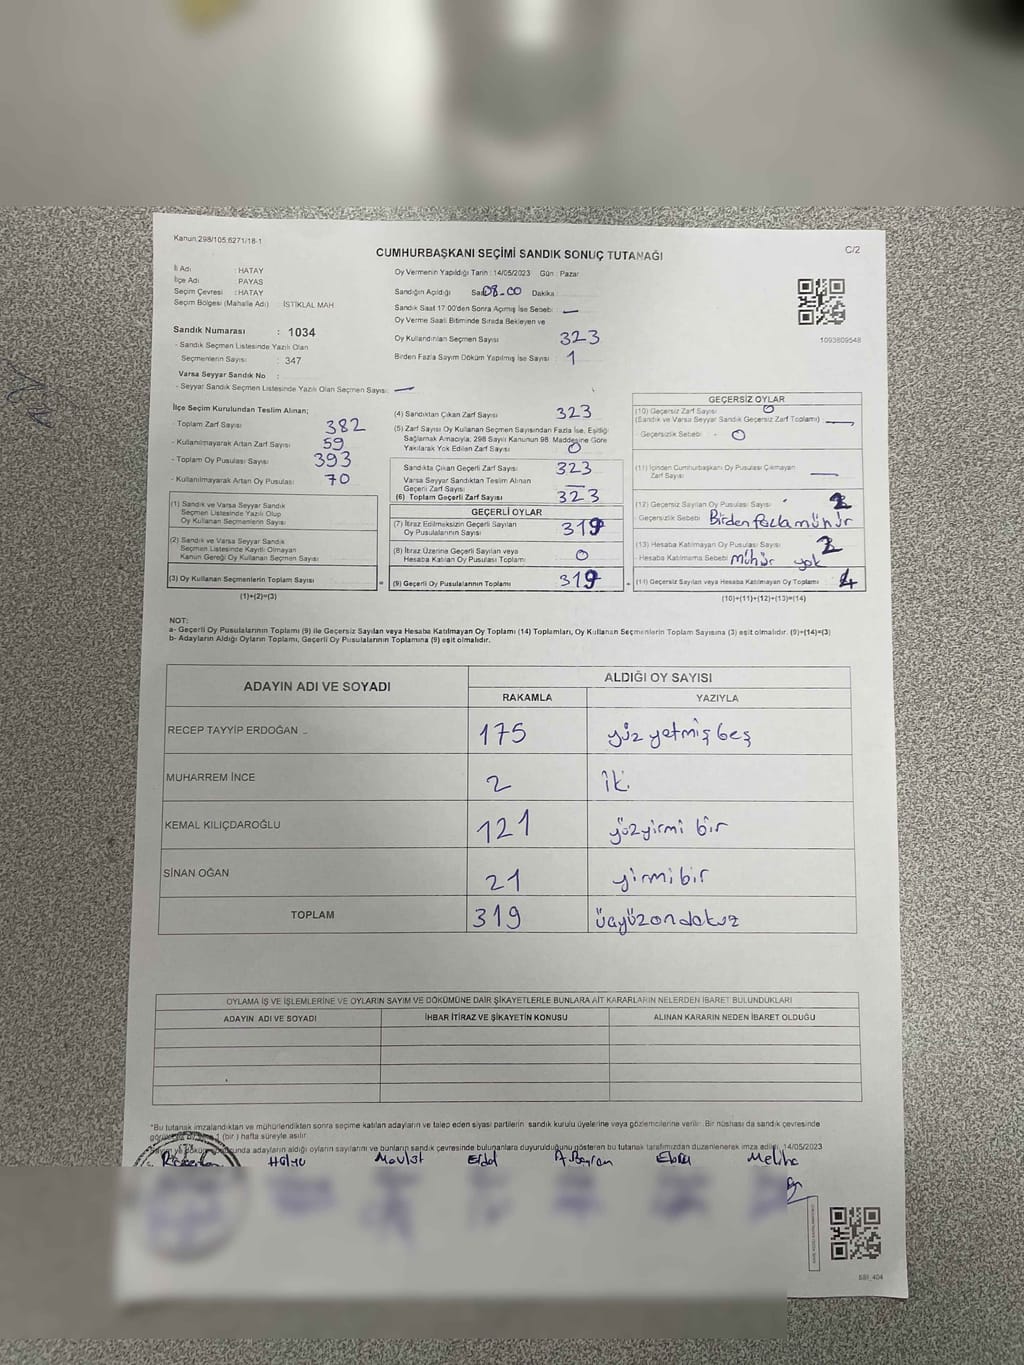 Kanun:298/105,6271/18-1
C/2
CUMHURBAŞKANI SEÇİMİ SANDIK SONUÇ TUTANAĞI
İl Adı : HATAY
İlçe Adı : PAYAS
Seçim Çevresi : HATAY
Seçim Bölgesi (Mahalle Adı) İSTİKLAL MAH
Sandık Numarası : 1034
- Sandık Seçmen Listesinde Yazılı Olan
Seçmenlerin Sayısı : 347
Varsa Seyyar Sandık No :
- Seyyar Sandık Seçmen Listesinde Yazılı Olan Seçmen Sayısı: —
Oy Vermenin Yapıldığı Tarih : 14/05/2023 Gün : Pazar
Sandığın Açıldığı Saat 08-00 Dakika
Sandık Saat 17:00'den Sonra Açımış İse Sebebi : —
Oy Verme Saati Bitiminde Sırada Bekleyen ve
Oy Kullandırılan Seçmen Sayısı : 323
Birden Fazla Sayım Döküm Yapılmış İse Sayısı : 1
1093809548
İlçe Seçim Kurulundan Teslim Alınan;
- Toplam Zarf Sayısı : 382
- Kullanılmayarak Artan Zarf Sayısı : 59
- Toplam Oy Pusulası Sayısı : 393
- Kullanılmayarak Artan Oy Pusulası : 70
(1) Sandık ve Varsa Seyyar Sandık
Seçmen Listesinde Yazılı Olup
Oy Kullanan Seçmenlerin Sayısı
(2) Sandık ve Varsa Seyyar Sandık
Seçmen Listesinde Kayıtlı Olmayan
Kanun Gereği Oy Kullanan Seçmen Sayısı
(3) Oy Kullanan Seçmenlerin Toplam Sayısı
(1)+(2)=(3)
(4) Sandıktan Çıkan Zarf Sayısı : 323
(5) Zarf Sayısı Oy Kullanan Seçmen Sayısından Fazla İse, Eşitliği
Sağlamak Amacıyla; 298 Sayılı Kanunun 98. Maddesine Göre
Yakılarak Yok Edilen Zarf Sayısı : 0
Sandıkta Çıkan Geçerli Zarf Sayısı : 323
Varsa Seyyar Sandıktan Teslim Alınan
Geçerli Zarf Sayısı : —
(6) Toplam Geçerli Zarf Sayısı : 323
GEÇERLİ OYLAR
(7) İtiraz Edilmeksizin Geçerli Sayılan
Oy Pusulalarının Sayısı : 319
(8) İtiraz Üzerine Geçerli Sayılan veya
Hesaba Katılan Oy Pusulaları Toplamı : 0
= (9) Geçerli Oy Pusulalarının Toplamı : 319
GEÇERSİZ OYLAR
(10) Geçersiz Zarf Sayısı : 0
(Sandık ve Varsa Seyyar Sandık Geçersiz Zarf Toplamı) —
- Geçersizlik Sebebi : - 0
(11) İçinden Cumhurbaşkanı Oy Pusulası Çıkmayan
Zarf Sayısı : —
(12) Geçersiz Sayılan Oy Pusulası Sayısı : 2
Geçersizlik Sebebi : Birden fazla mühür
(13) Hesaba Katılmayan Oy Pusulası Sayısı : 2
- Hesaba Katılmama Sebebi : mühür yok
(14) Geçersiz Sayılan veya Hesaba Katılmayan Oy Toplamı : 4
(10)+(11)+(12)+(13)=(14)
NOT:
a- Geçerli Oy Pusulalarının Toplamı (9) ile Geçersiz Sayılan veya Hesaba Katılmayan Oy Toplamı (14) Toplamları, Oy Kullanan Seçmenlerin Toplam Sayısına (3) eşit olmalıdır. (9)+(14)=(3)
b- Adayların Aldığı Oyların Toplamı, Geçerli Oy Pusulalarının Toplamına (9) eşit olmalıdır.
ADAYIN ADI VE SOYADI
ALDIĞI OY SAYISI
RAKAMLA YAZIYLA
RECEP TAYYİP ERDOĞAN 175 yüz yetmiş beş
MUHARREM İNCE 2 iki
KEMAL KILIÇDAROĞLU 121 yüzyirmi bir
SİNAN OĞAN 21 yirmibir
TOPLAM 319 üçyüzondokuz
OYLAMA İŞ VE İŞLEMLERİNE VE OYLARIN SAYIM VE DÖKÜMÜNE DAİR ŞİKAYETLERLE BUNLARA AİT KARARLARIN NELERDEN İBARET BULUNDUKLARI
ADAYIN ADI VE SOYADI İHBAR İTİRAZ VE ŞİKAYETİN KONUSU ALINAN KARARIN NEDEN İBARET OLDUĞU
*Bu tutanak imzalandıktan ve mühürlendikten sonra seçime katılan adayların ve talep eden siyasi partilerin sandık kurulu üyelerine veya gözlemcilerine verilir. Bir nüshası da sandık çevresinde
(bir) hafta süreyle asılır.
adayların aldığı oyların sayılarını ve bunların sandık çevresinde bulunanlara duyurulduğunu gösteren bu tutanak tarafımızdan düzenlenerek imza edildi. 14/05/2023
Hülya Mevlüt Erdal A.Bayram Ebru Meliha
SSI_404